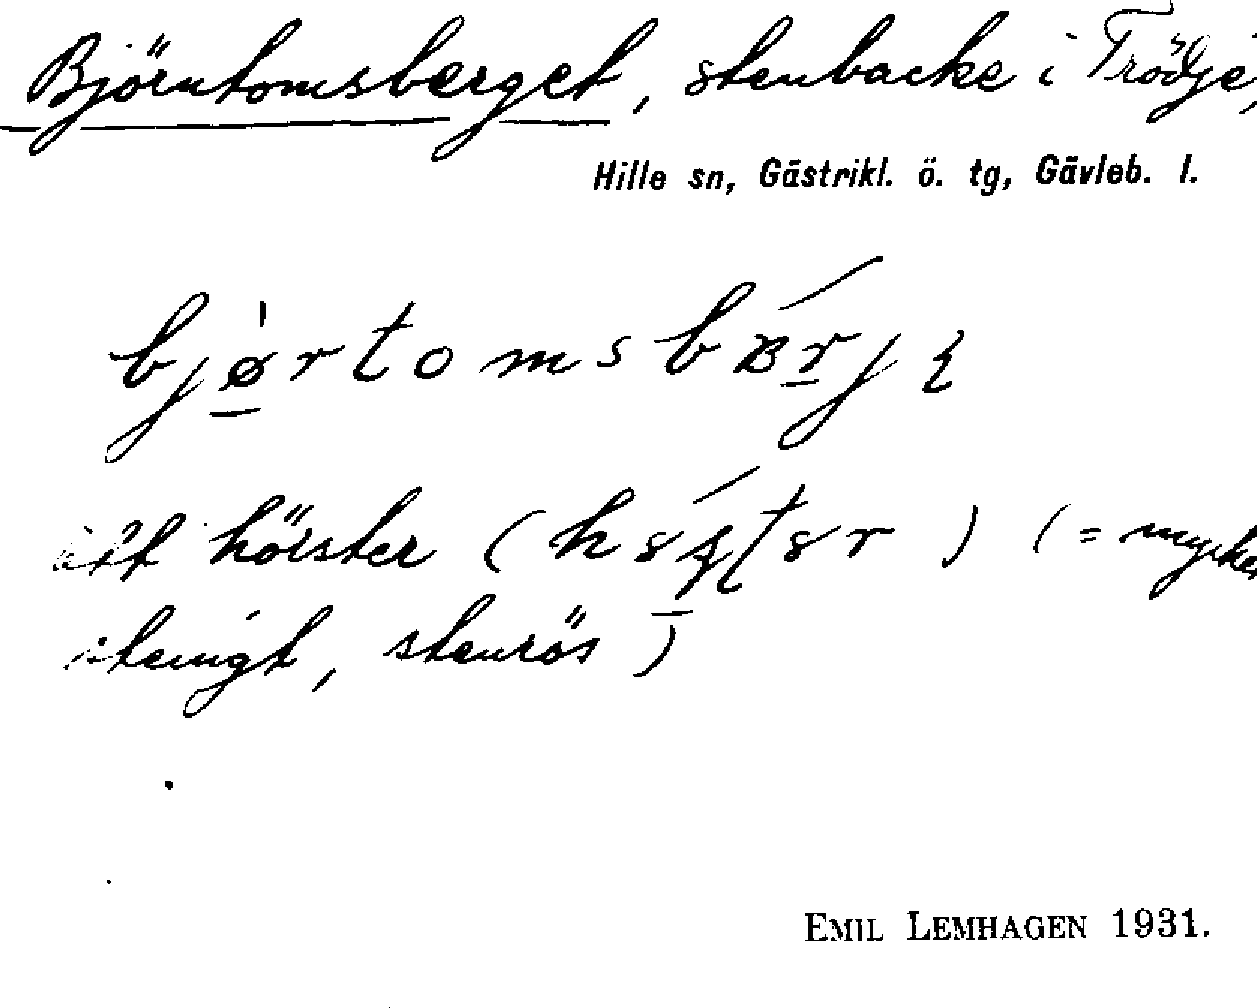 Björntomsberget, stenbacke i Trödje,
Hille sn, Gästrikl. ö. tg, Gävleb. l.
ett hörster ( ) (= mycket
stenigt, stenrös)
EMIL LEMHAGEN 1931.